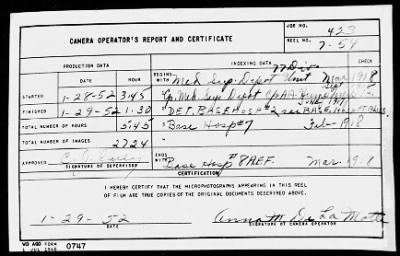 CAMERA OPERATOR'S REPORT AND CERTIFICATE
JOB NO. 423
REEL NO. 7-54
PRODUCTION DATA INDEXING DATA
DATE HOUR CHECK
BEGINS WITH Med. Sup. Depot Unit Mar 1918
STARTED 1-28-52 3:45 Med. Sup. Depot
FINISHED 1-29-52 1:30 DET. BASE HOSP #2 BASE
TOTAL NUMBER OF HOURS 5:45 Base Hosp #7 Feb 1918
TOTAL NUMBER OF IMAGES 2724
APPROVED ENDS WITH Base Hosp #8 AEF. Mar 1918
SIGNATURE OF SUPERVISOR
CERTIFICATION
I HEREBY CERTIFY THAT THE MICROPHOTOGRAPHS APPEARING IN THIS REEL
OF FILM ARE TRUE COPIES OF THE ORIGINAL DOCUMENTS DESCRIBED ABOVE.
1-29-52 Anna M. De La Motte
DATE SIGNATURE OF CAMERA OPERATOR
WD AGO FORM 0747